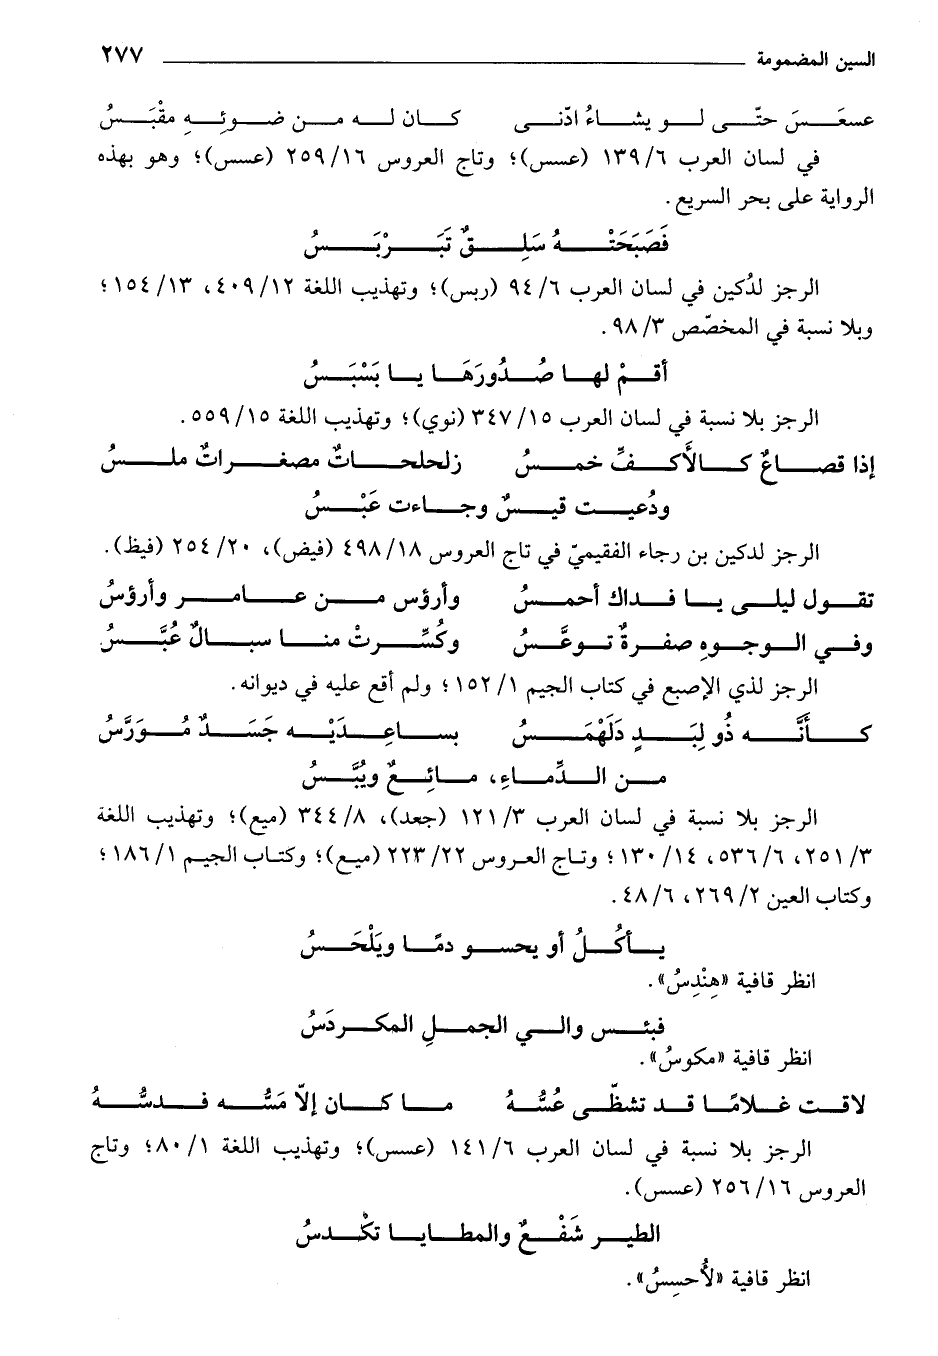 السين المضمومة ٢٧٧
عسعَسَ حتّى لو يشاءُ ادّنى كان له من ضوئِهِ مقْبَسُ
في لسان العرب ١٣٩/٦ (عسس)؛ وتاج العروس ٢٥٩/١٦ (عسس)؛ وهو بهذه
الرواية على بحر السريع.
فَصَبَحَتْهُ سَلِقٌ تَبَرْبَسُ
الرجز لدُكين في لسان العرب ٩٤/٦ (ربس)؛ وتهذيب اللغة ٤٠٩/١٢، ١٥٤/١٣؛
وبلا نسبة في المخصّص ٩٨/٣.
أقمْ لها صُدُورَهَا يا بَسْبَسُ
الرجز بلا نسبة في لسان العرب ٣٤٧/١٥ (نوي)؛ وتهذيب اللغة ٥٥٩/١٥.
إذا قصاعٌ كالأَكفِّ خمسُ زلحلحاتٌ مصغراتٌ ملسُ
ودُعيت قيسٌ وجاءت عَبْسُ
الرجز لدكين بن رجاء الفقيميّ في تاج العروس ٤٩٨/١٨ (فيض)، ٢٥٤/٢٠ (فيظ).
تقول ليلى يا فداك أحمسُ وأرؤس من عامر وأرؤسُ
وفي الوجوهِ صفرةٌ توعَّسُ وكُسِّرتْ منا سبالٌ عُبَّسُ
الرجز لذي الإصبع في كتاب الجيم ١٥٢/١؛ ولم أقع عليه في ديوانه.
كأنَّه ذُو لِبَدٍ دَلَهْمَسُ بساعِدَيْه جَسَدٌ مُورَّسُ
من الدِّماءِ، مائِعٌ ويُبَّسُ
الرجز بلا نسبة في لسان العرب ١٢١/٣ (جعد)، ٣٤٤/٨ (ميع)؛ وتهذيب اللغة
٢٥١/٣، ٥٣٦/٦، ١٣٠/١٤؛ وتاج العروس ٢٢٣/٢٢ (ميع)؛ وكتاب الجيم ١٨٦/١؛
وكتاب العين ٢٦٩/٢، ٤٨/٦.
يأكُلُ أو يحسو دمًا ويَلْحَسُ
انظر قافية «هِنْدِسُ».
فبئس والي الجملِ المكردَسُ
انظر قافية «مكوسُ».
لاقت غلامًا قد تشظّى عُسُّهُ ما كان إلاّ مَسُّه فدسُّهُ
الرجز بلا نسبة في لسان العرب ١٤١/٦ (عسس)؛ وتهذيب اللغة ٨٠/١؛ وتاج
العروس ٢٥٦/١٦ (عسس).
الطير شَفْعٌ والمطايا تكْدسُ
انظر قافية «لأُحسِسُ».